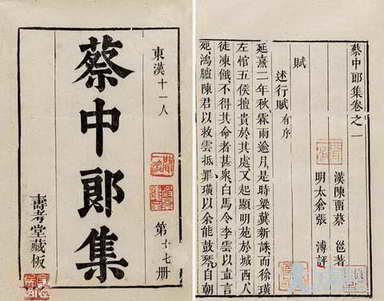 東漢十一人
蔡中郎集
第十七冊
壽考堂藏板
蔡中郎集卷之一
漢陳留蔡邕著
明太倉張溥評
賦
述行賦有序
延熹二年秋霖雨逾月是時梁冀新誅而徐璜
左悺五侯擅貴於其處又起顯明苑於城西人
徒凍餓不得其命者甚衆白馬令李雲以直言
死鴻臚陳君以救雲抵罪璜以余能鼓琴白朝